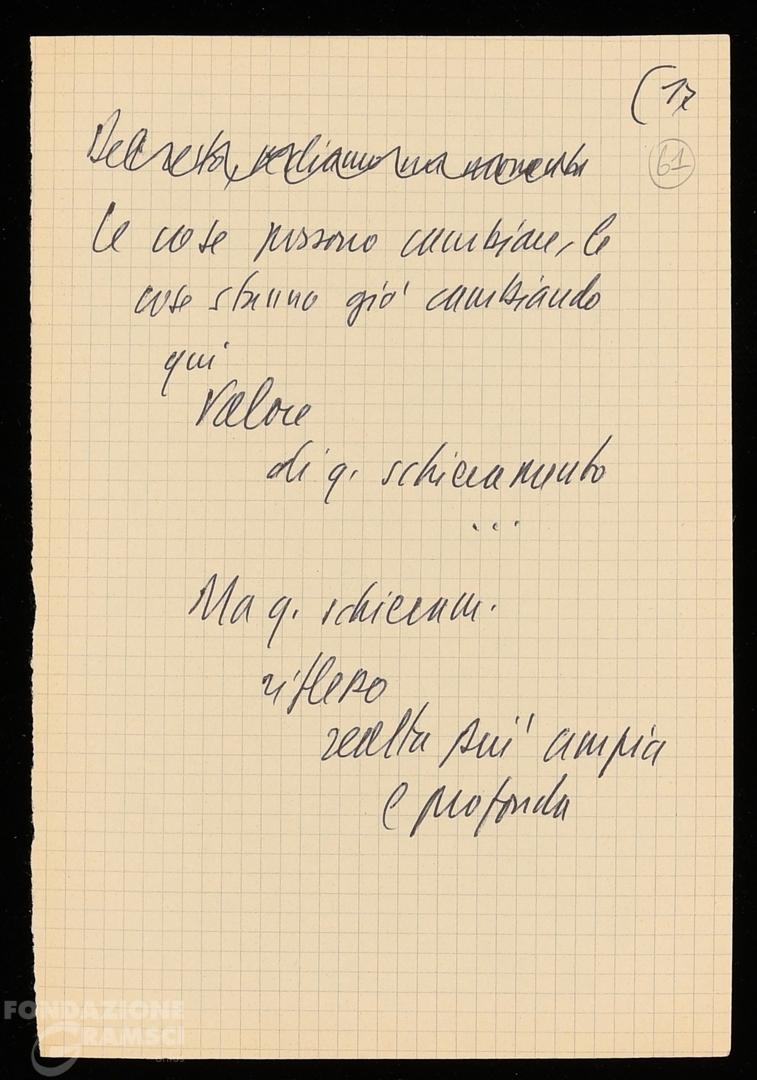 (17
Del resto, vediamo un momento
61
Le cose possono cambiare, le
cose stanno già cambiando
qui
Valore
di q. schieramento
...
Ma q. schieram.
riflesso
realtà più ampia
e profonda
FONDAZIONE
GRAMSCI